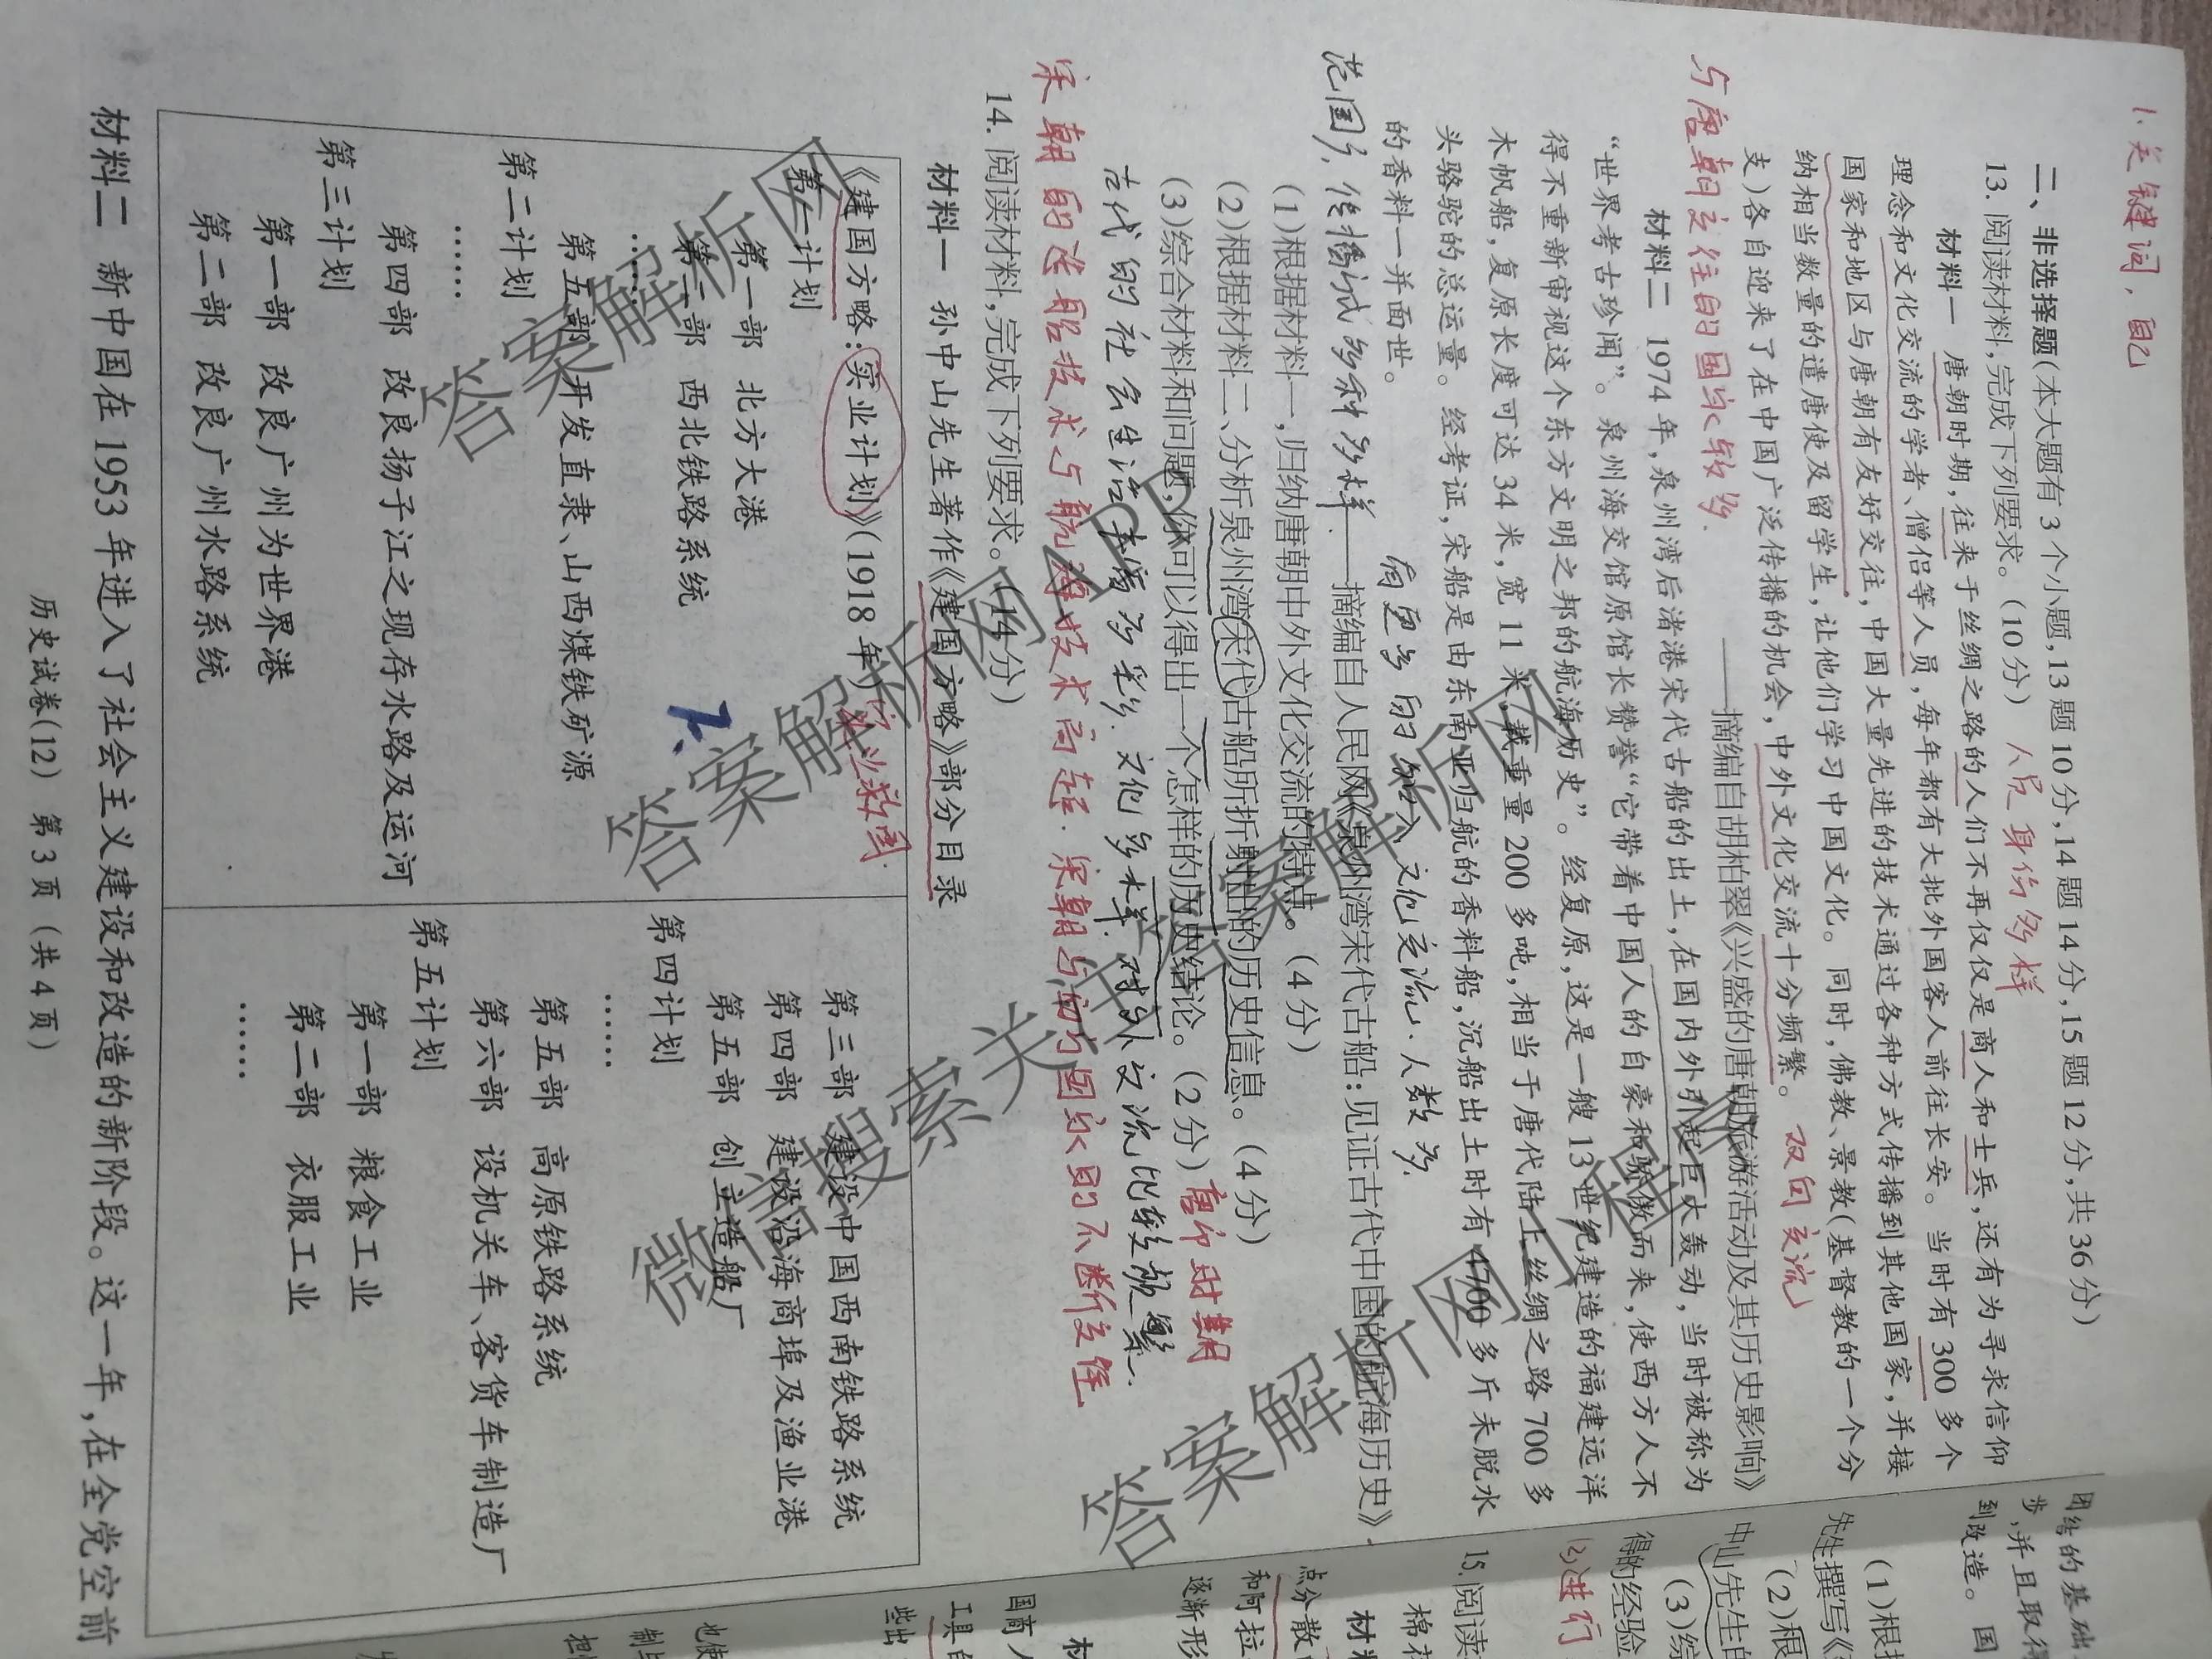 1.关键词，自己
二、非选择题(本大题有3个小题,13题10分,14题14分,15题12分,共36分)
13. 阅读材料,完成下列要求。(10分) 人员身份多样
材料一 唐朝时期,往来于丝绸之路的人们不再仅仅是商人和士兵,还有为寻求信仰
理念和文化交流的学者、僧侣等人员,每年都有大批外国客人前往长安。当时有300多个
国家和地区与唐朝有友好交往,中国大量先进的技术通过各种方式传播到其他国家,并接
纳相当数量的遣唐使及留学生,让他们学习中国文化。同时,佛教、景教(基督教的一个分
支)各自迎来了在中国广泛传播的机会,中外文化交流十分频繁。 双向交流
——摘编自胡柏翠《兴盛的唐朝旅游活动及其历史影响》
与唐朝交往的国家较多.
材料二 1974年,泉州湾后渚港宋代古船的出土,在国内外引起巨大轰动,当时被称为
“世界考古珍闻”。泉州海交馆原馆长赞誉“它带着中国人的自豪和骄傲而来,使西方人不
得不重新审视这个东方文明之邦的航海历史”。经复原,这是一艘13世纪建造的福建远洋
木帆船,复原长度可达34米,宽11米,载重量200多吨,相当于唐代陆上丝绸之路700多
头骆驼的总运量。经考证,宋船是由东南亚归航的香料船,沉船出土时有4700多斤未脱水
的香料一并面世。
有更多的加入文化交流.人数多.
范围多,传播试多种多样.
——摘编自人民网《泉州湾宋代古船:见证古代中国的航海历史》
(1)根据材料一,归纳唐朝中外文化交流的特点。(4分)
(2)根据材料二、分析泉州湾宋代古船所折射出的历史信息。(4分)
(3)综合材料和问题,你可以得出一个怎样的历史结论。(2分) 唐
古代的社会生活丰富多彩.文化多样.对外交流比较频繁.
宋朝的造船技术与航海技术高超.宋朝与国家的不断交往
14. 阅读材料,完成下列要求。(14分)
材料一 孙中山先生著作《建国方略》部分目录
《建国方略:实业计划》(1918年) 实业救国
第一计划
第一部 北方大港
第二部 西北铁路系统
……
第五部 开发直隶、山西煤铁矿源
第二计划
……
第四部 改良扬子江之现存水路及运河
第三计划
第一部 改良广州为世界港
第二部 改良广州水路系统
第三部 建设中国西南铁路系统
第四部 建设沿海商埠及渔业港
第五部 创立造船厂
第四计划
……
第五部 高原铁路系统
第六部 设机关车、客货车制造厂
第五计划
第一部 粮食工业
第二部 衣服工业
……
材料二 新中国在1953年进入了社会主义建设和改造的新阶段。这一年,在全党空前
历史试卷(12) 第3页(共4页)
团结的基础
步,并且取得
到改造。国
(1)根
先生撰写《
(2)根
中山先生的
(3)综
得的经验
(2)进行
15. 阅读
材
棉花
点分散
和阿拉
逐渐形
材
国商人
工具
些出
也使
制
答案解析圈
答案解析圈APP
答案解析圈
答案解析圈